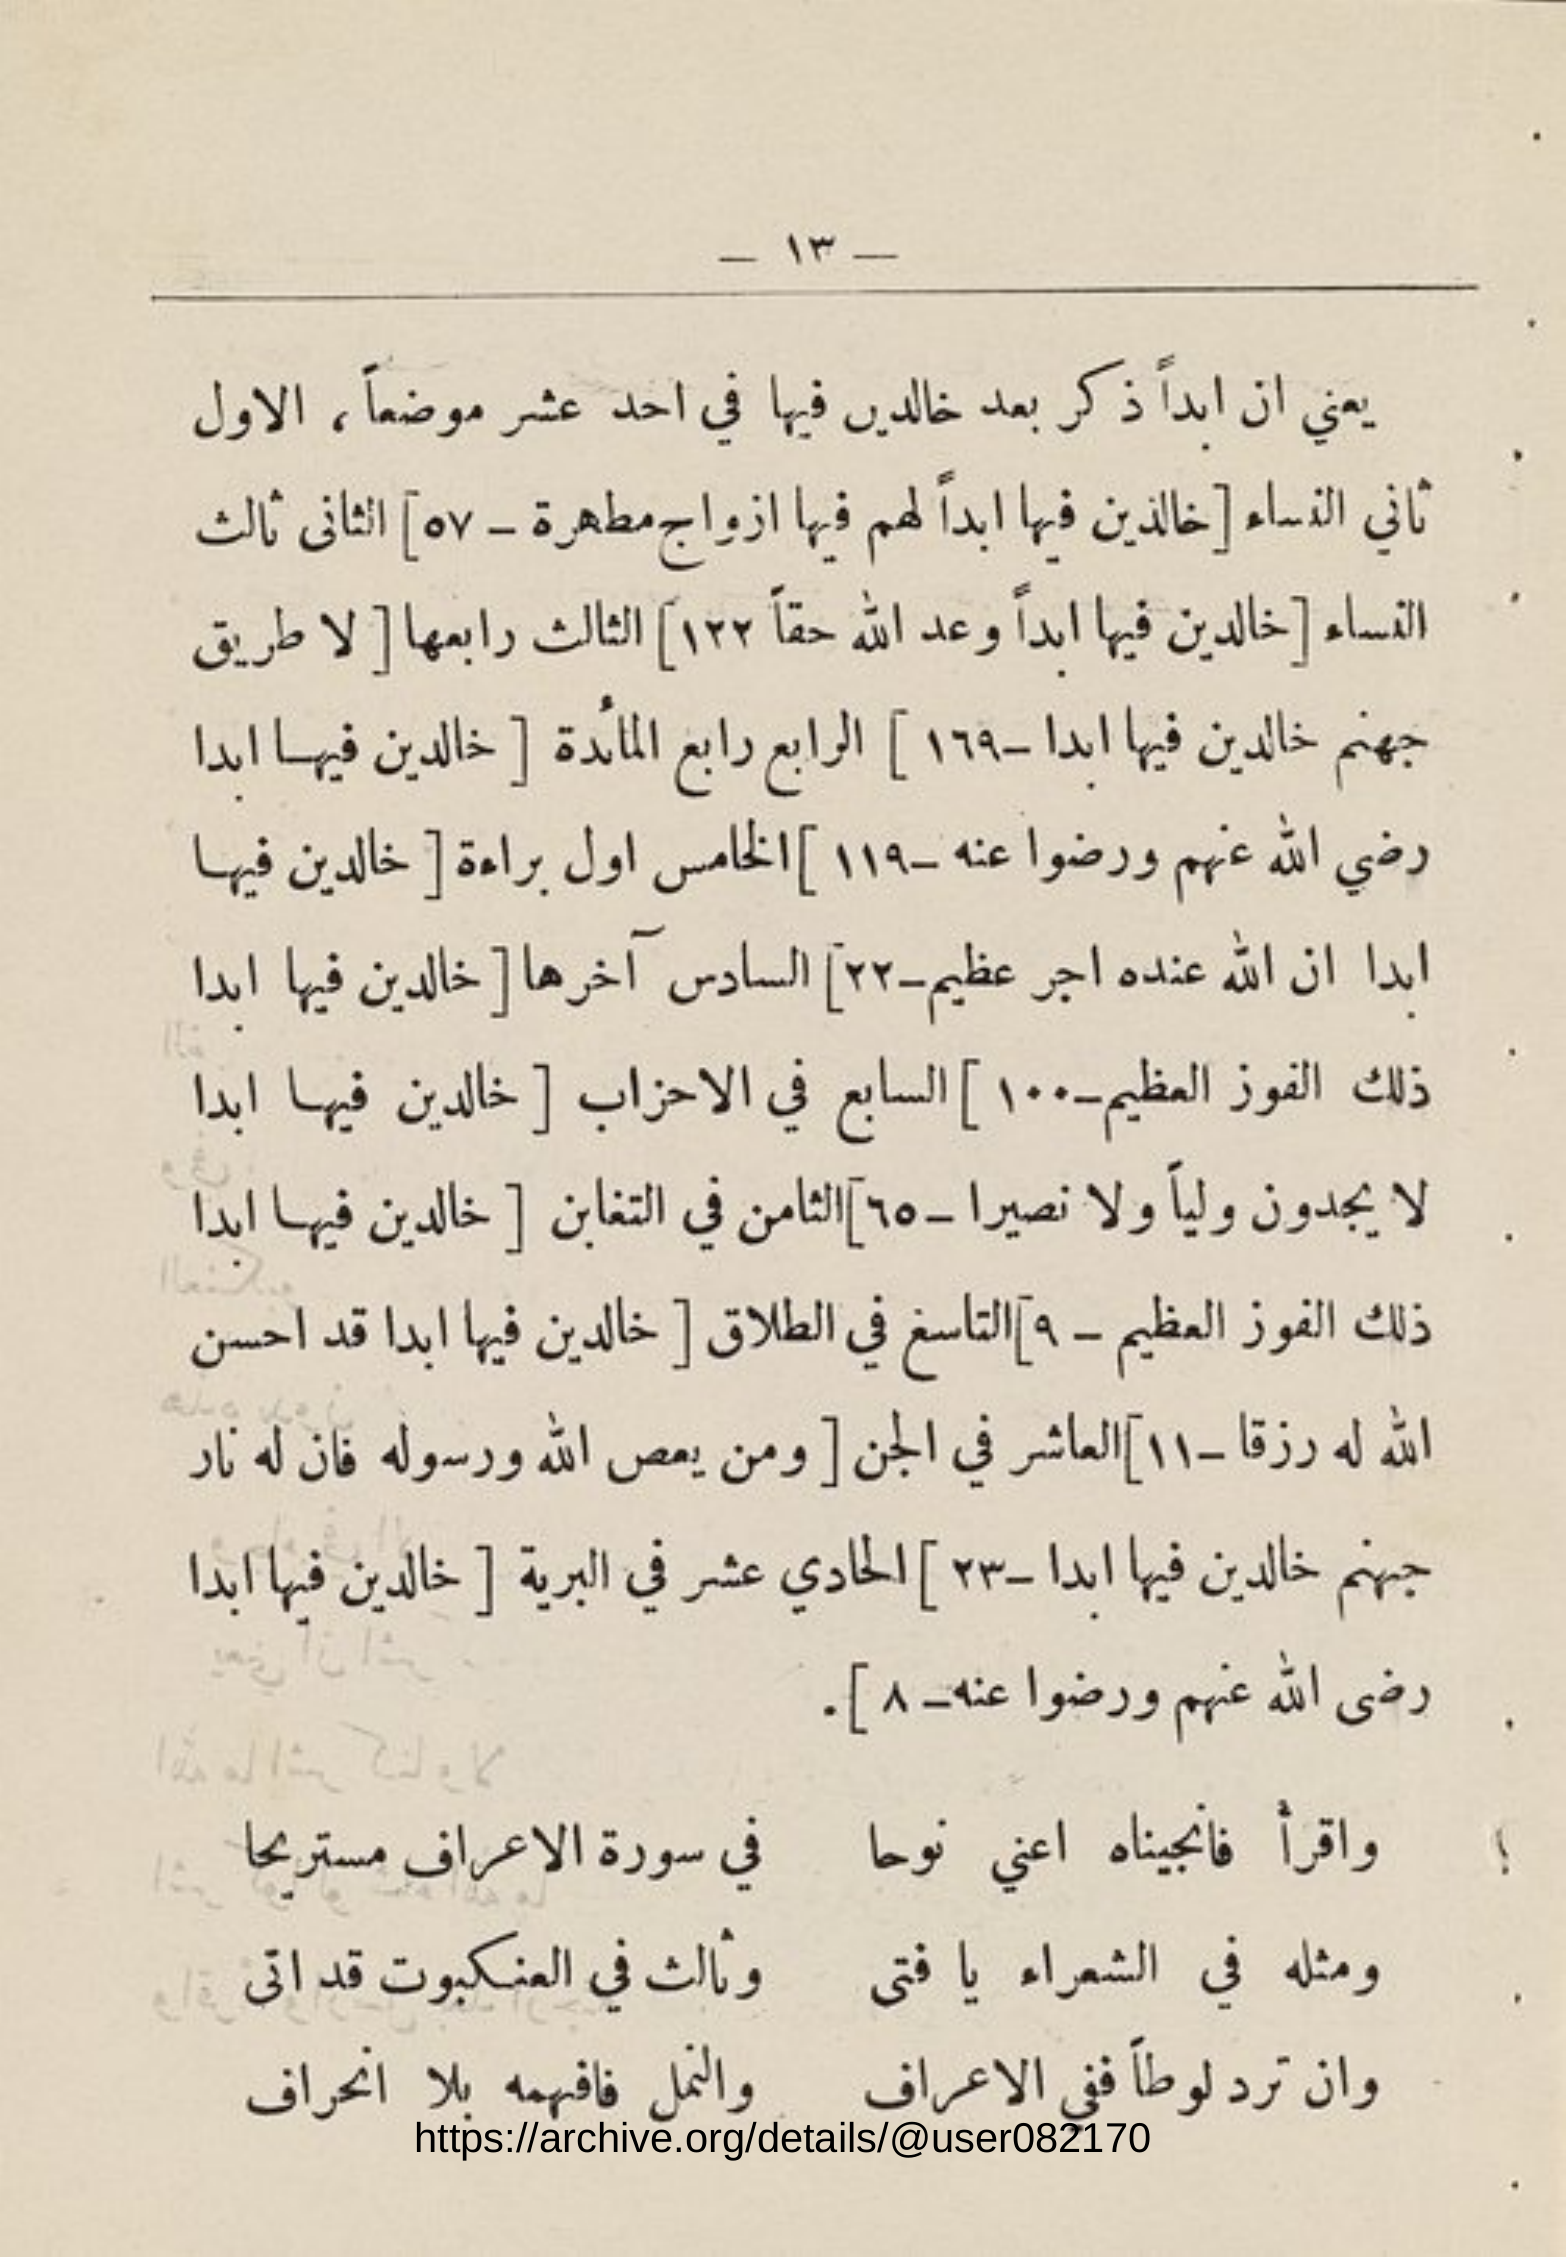 — ١٣ —
يعني ان ابداً ذكر بعد خالدين فيها في احد عشر موضعاً ، الاول
ثاني النساء [خالدين فيها ابداً لهم فيها ازواج مطهرة – ٥٧] الثانى ثالث
النساء [خالدين فيها ابداً وعد الله حقاً ١٢٢] الثالث رابعها [ لا طريق
جهنم خالدين فيها ابدا –١٦٩ ] الرابع رابع المائدة [ خالدين فيها ابدا
رضي الله عنهم ورضوا عنه –١١٩ ] الخامس اول براءة [ خالدين فيها
ابدا ان الله عنده اجر عظيم–٢٢] السادس آخرها [ خالدين فيها ابدا
ذلك الفوز العظيم–١٠٠ ] السابع في الاحزاب [ خالدين فيها ابدا
لا يجدون ولياً ولا نصيرا –٦٥] الثامن في التغابن [ خالدين فيها ابدا
ذلك الفوز العظيم – ٩] التاسغ في الطلاق [ خالدين فيها ابدا قد احسن
الله له رزقا –١١] العاشر في الجن [ ومن يعص الله ورسوله فان له نار
جهنم خالدين فيها ابدا –٢٣ ] الحادي عشر في البرية [ خالدين فيها ابدا
رضى الله عنهم ورضوا عنه– ٨ ] .
واقرأ فانجيناه اعني نوحا في سورة الاعراف مستريحا
ومثله في الشعراء يا فتى وثالث في العنكبوت قد اتى
وان ترد لوطاً ففي الاعراف والنمل فافهمه بلا انحراف
https://archive.org/details/@user082170